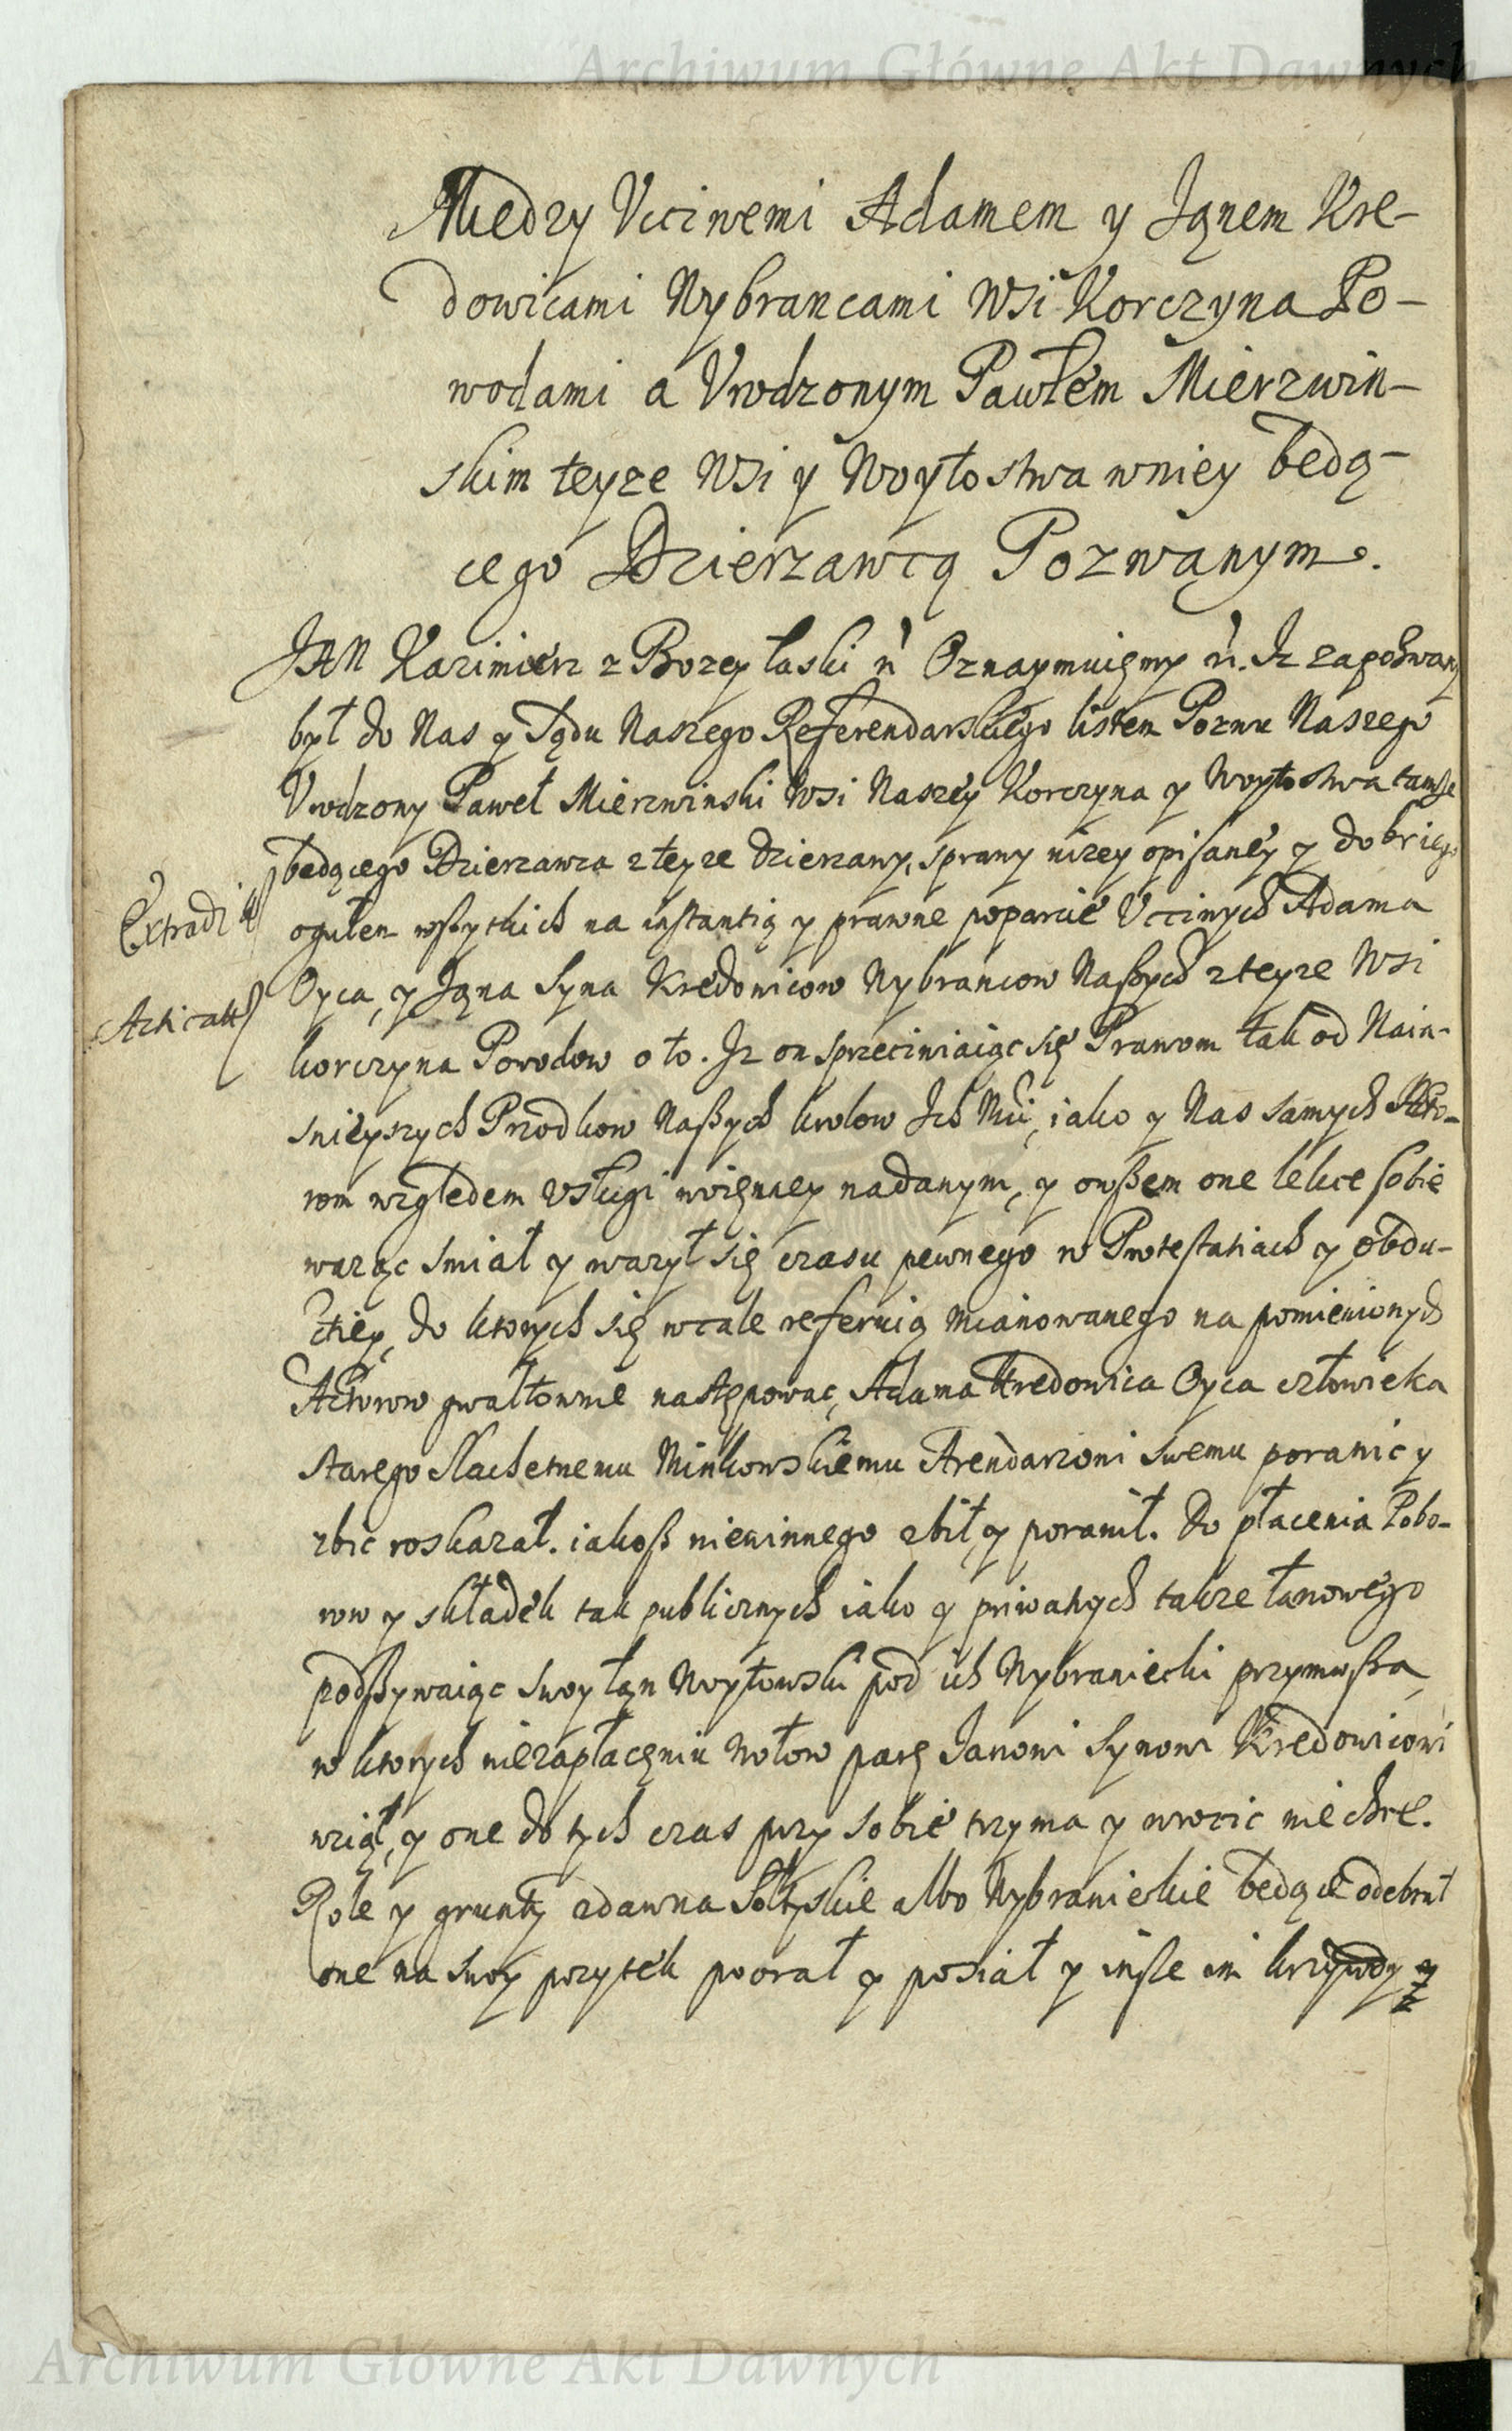 Archiwum Główne Akt Dawnych
Miedzy Vcciwemi Adamem y Iąnem Kre-
dowicami Wybrancami Wsi Korczyna Po-
wodami a Vrodzonym Pawłem Mierzwin-
skim teyze Wsi y Woytostwa wniey będą-
cego Dzierzawcą Pozwąnym.
JAN Kazimierz z Bozey łaski ń Oznaymuięmy ń. Iz zapozwany
był do Nas y Sądu Naszego Referendarskiego listem Pozwu Naszego
Vrodzony Paweł Mierzwinski Wsi Naszey Korczyna y Woytostwa tamże
będącego Dzierzawca z teyze dzierzawy, sprawy nizey opisaney y dobr iego
ogułem wszytkich na instantią y prawne poparcie Vcciwych Adama
Oyca, y Iąna Syna Kredowicow Wybrancow Naszych z teyze Wsi
Extradit
Acticatt
korczyna Powodow o to. Iz on sprzeciwiaiąc się Prawom tak od Nain-
snieyszych Przodkow Naszych krolow Ich Mći, iako y Nas samych
wom względem vsługi woięnney nadanym, y owszem one lekce sobie
waząc smiał y wazył się czasu pewnego w Protestatiach y obdu-
ktiey, do ktorych się wcale referuią mianowanego na pomienionych
Aktorow gwałtownie nastęmpowac, Adama Kredowica Oyca człowieka
starego Slachetnemu Minkowskiemu Arendarzowi swemu poranic y
zbic roskazał. iakosz niewinnego zbił, y poranił. Do płacenia Pobo-
row y składek tak publicznych iako y priwatnych takze łanowego
podszywaiąc swoy łąn Woytowski pod ich Wybraniecki przymusza,
w ktorych niezapłacęniu Wołow parę Janowi Synowi Kredowicowi
wziął, y one do tych czas przy sobie trzyma y wrocic nie chce.
Role y grunty zdawna Sołtyskie albo Wybranieckie będące odebrał
one na swoy pozytek poorał y posiał y insze im krzywdy y